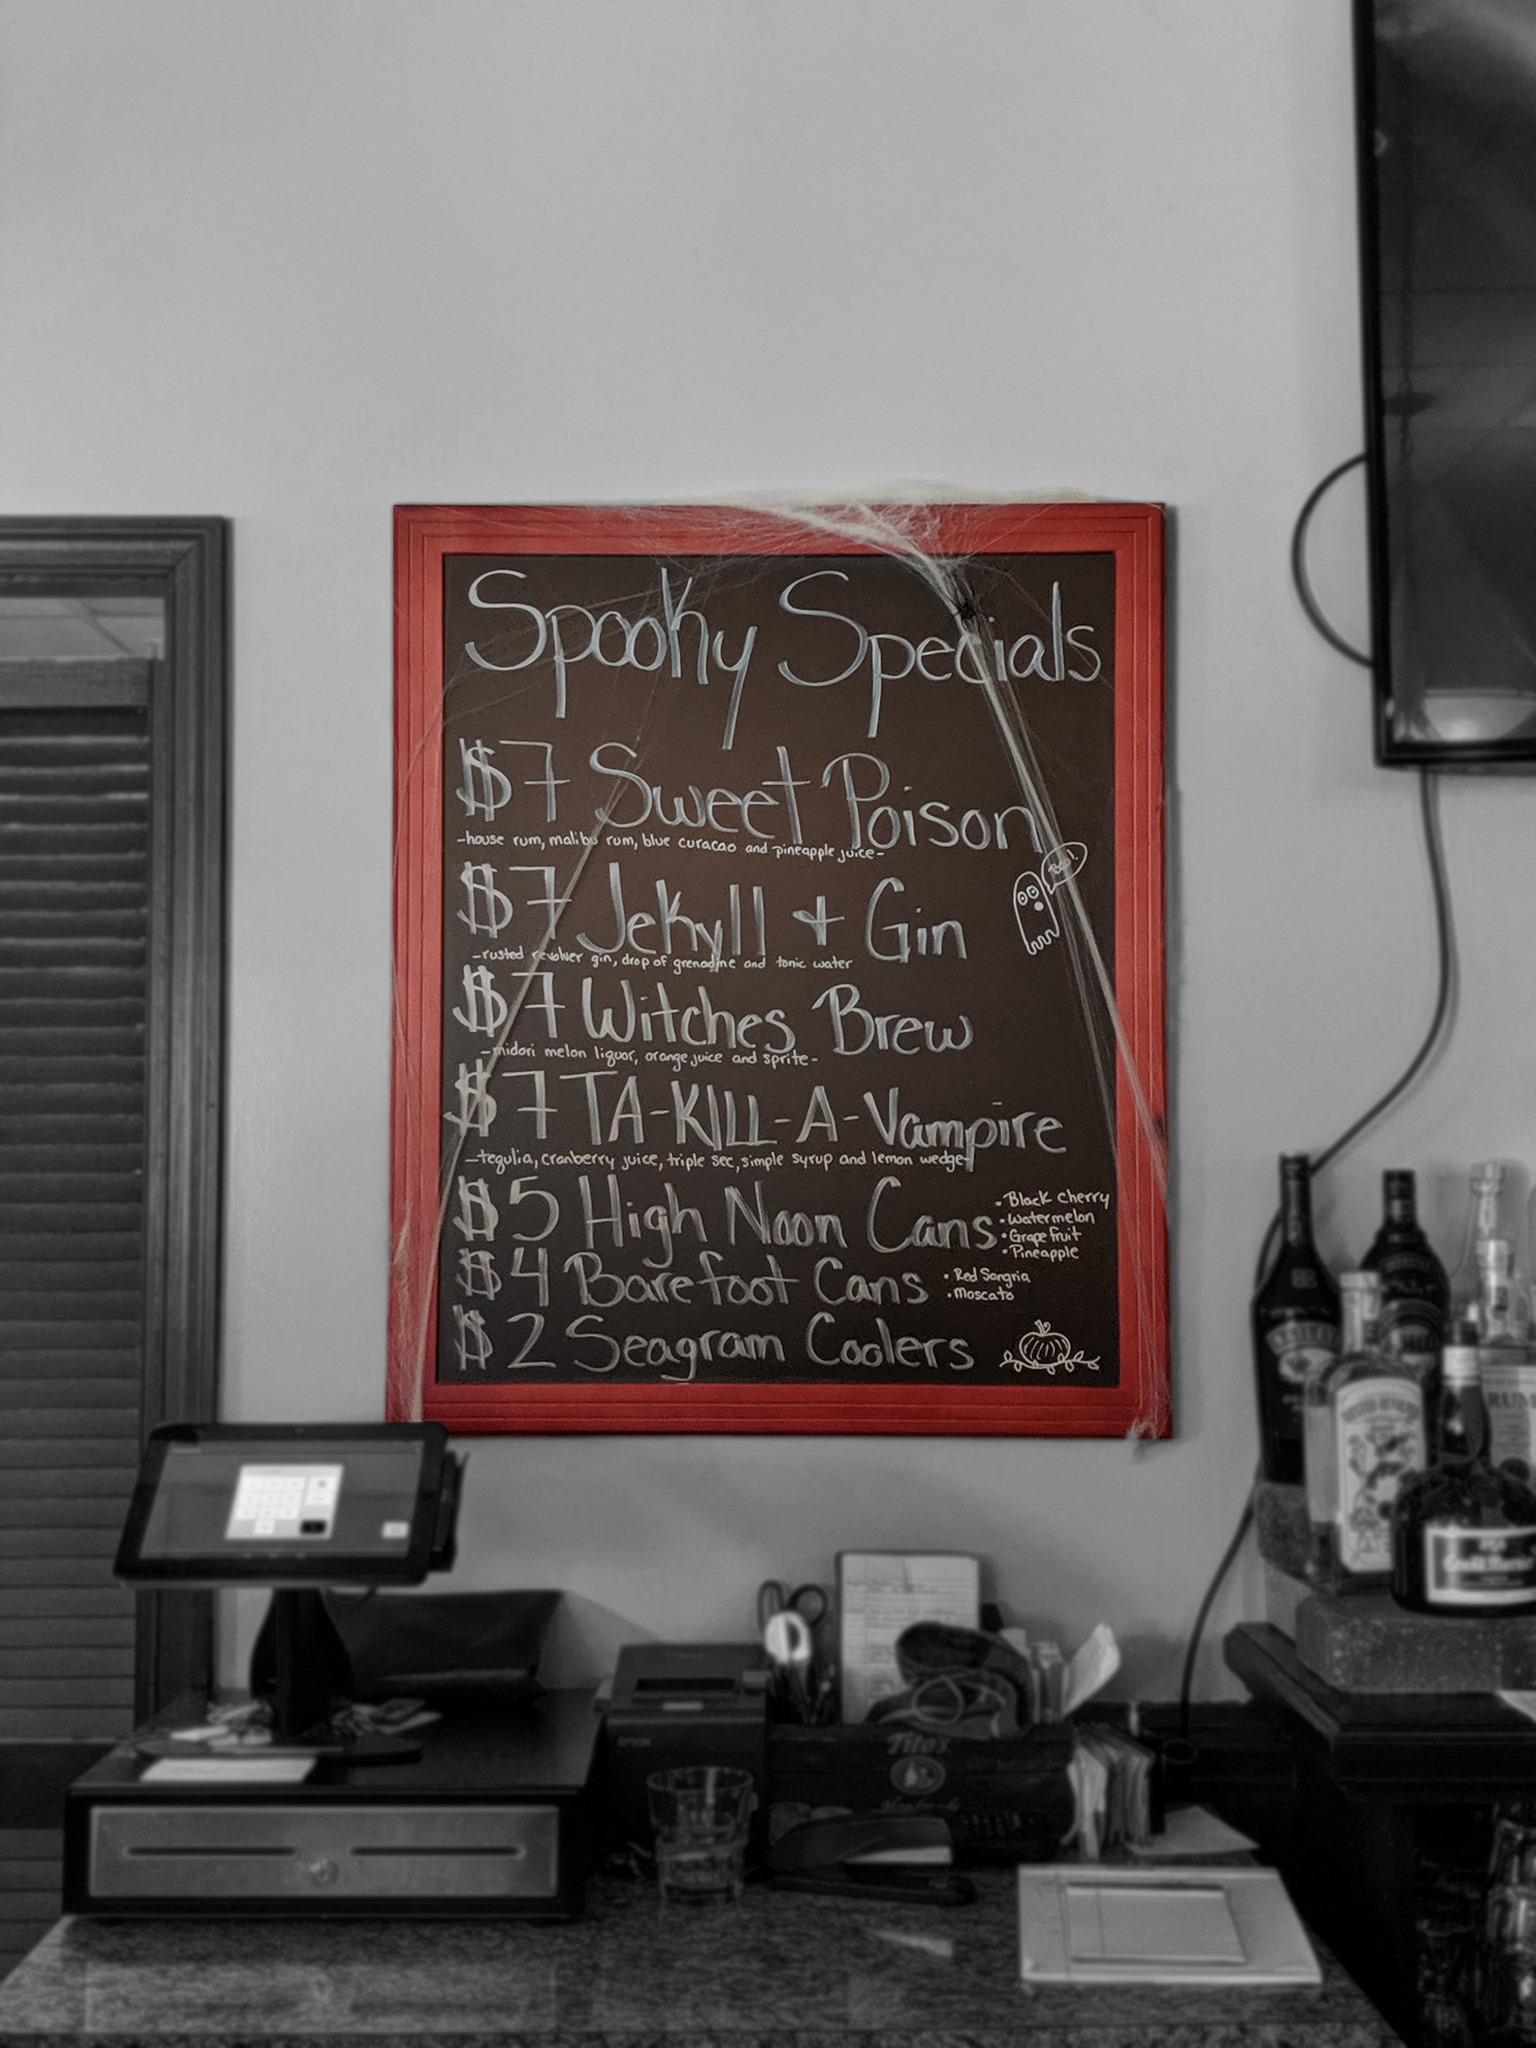 Spooky Specials
$7 Sweet Poison
-house rum, malibu rum, blue curacao and pineapple juice-
Boo!
$7 Jekyll + Gin
-rusted revolver gin, drop of grenadine and tonic water
$7 Witches Brew
-midori melon liquor, orange juice and sprite-
$7 TA-KILL-A-Vampire
-tequlia, cranberry juice, triple sec, simple syrup and lemon wedge-
$5 High Noon Cans
• Black Cherry
• Watermelon
• Grapefruit
• Pineapple
$4 Barefoot Cans
• Red Sangria
• Moscato
$2 Seagram Coolers
RUM
EPSON
Tito's